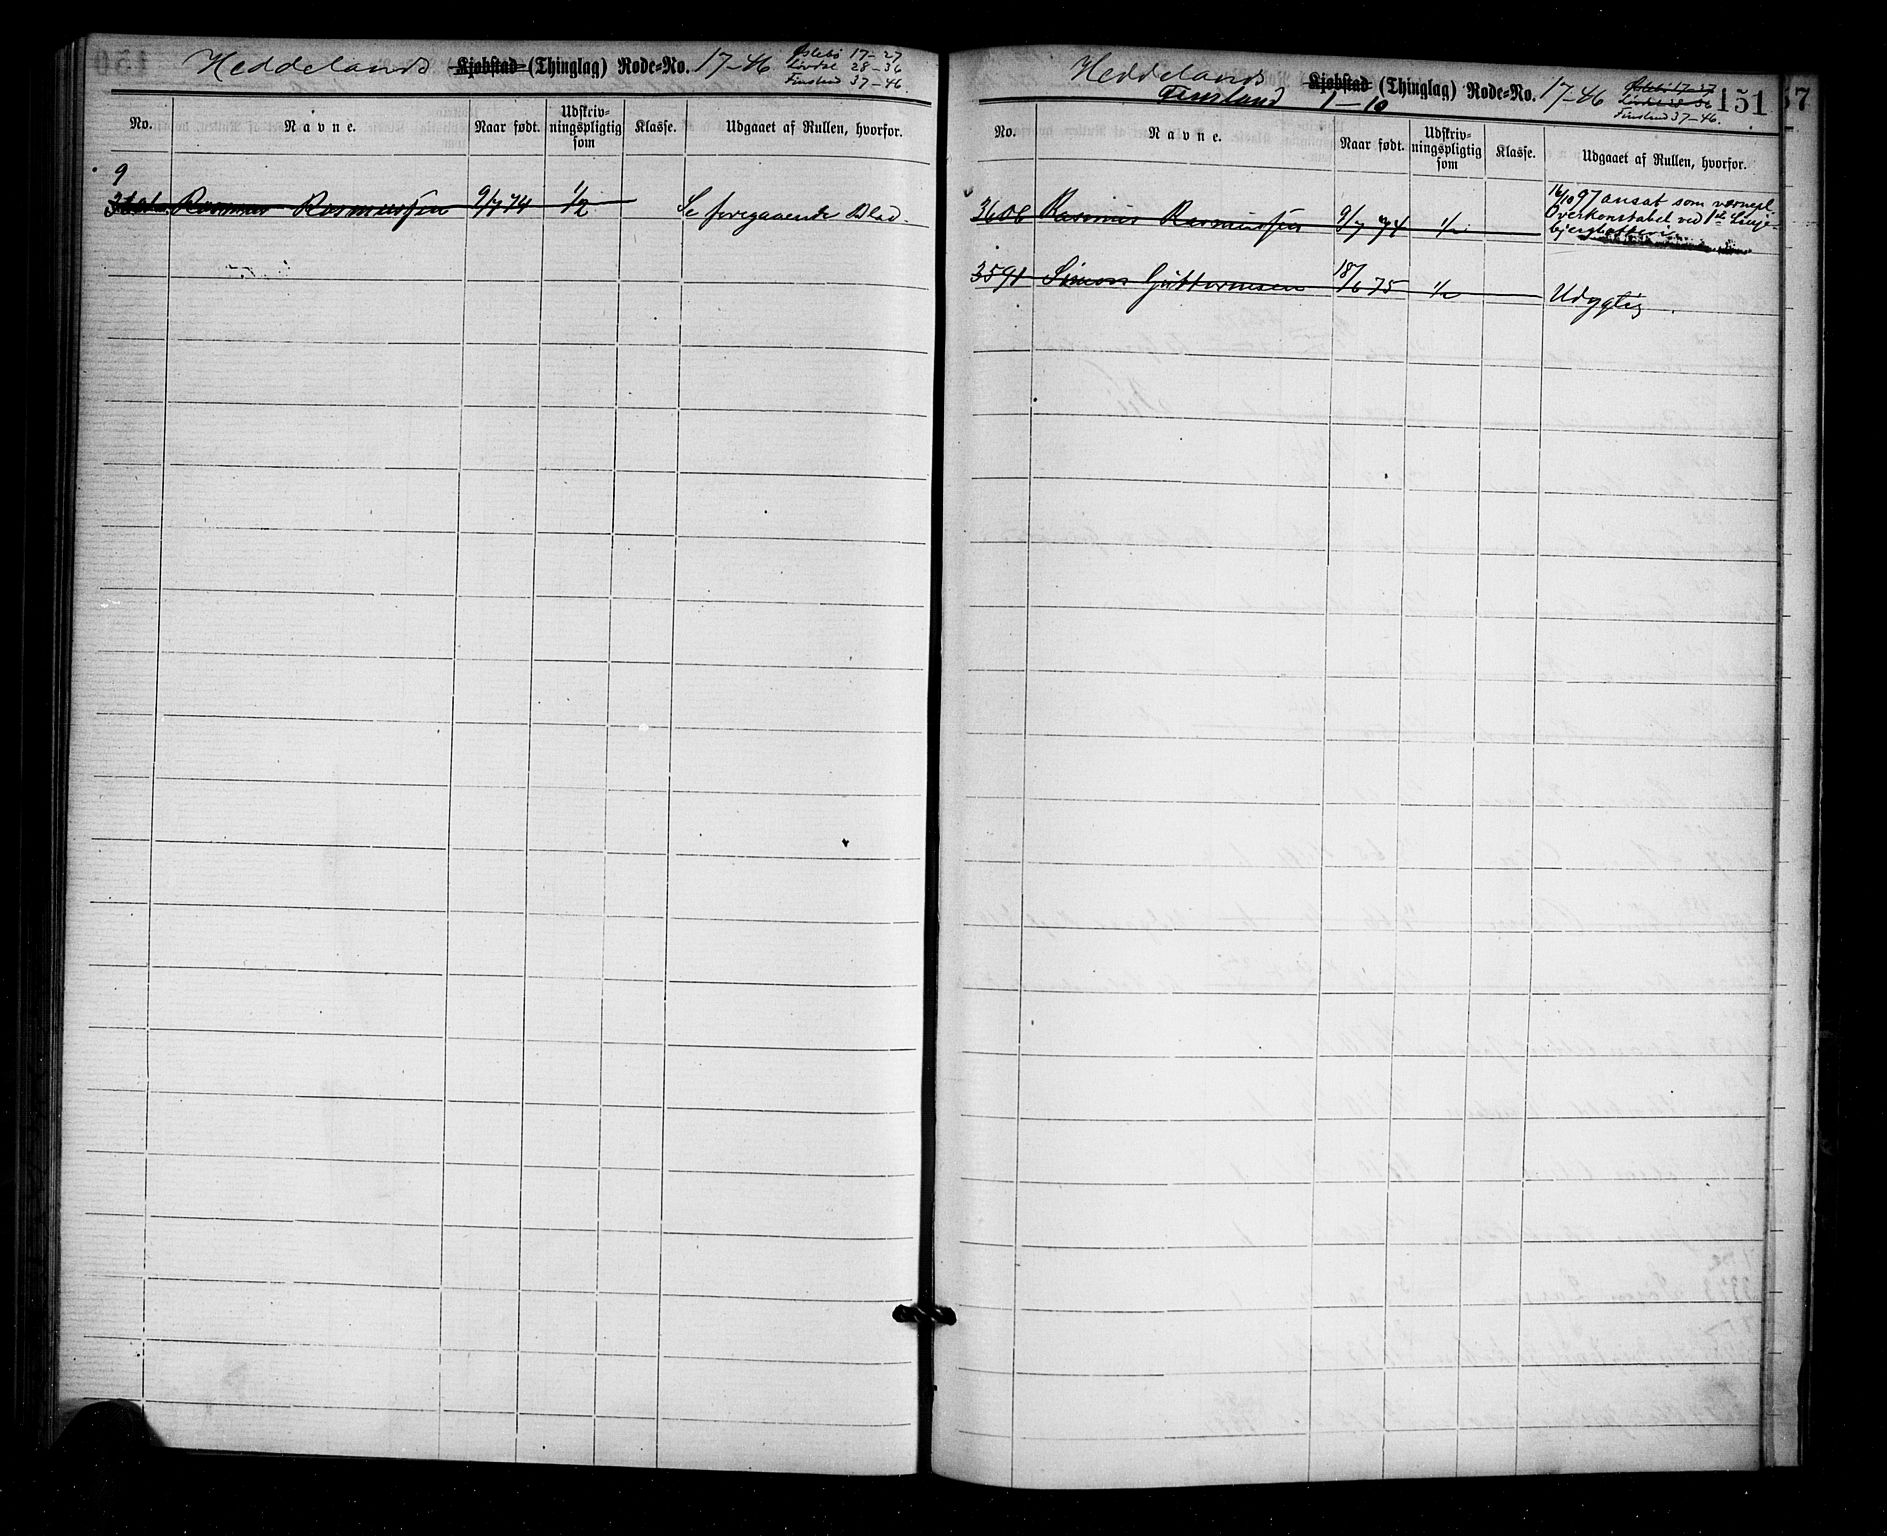 Heddelands Kjøbstad (Thinglag) Rode-No. 17-46 Øslebø 17-27
Løvdal 28-36
Finsland 37-46.
No. Navne. Naar født. Udskriv-
ningspligtig
som Klasse. Udgaaet af Rullen, hvorfor.
9
Rasmus Rasmussen 9/7 74 1/2 Se foregaaende Blad.
Heddelands Kjøbstad (Thinglag) Rode-No. 17-46 Øslebø 17-27
Løvdal 28-36
Finsland 37-46.
151
57
Finsland 1-10
No. Navne. Naar født. Udskriv-
ningspligtig
som Klasse. Udgaaet af Rullen, hvorfor.
3606 Rasmus Rasmussen 9/7 74 1/2 16/10 97 ansat som værnepl.
Overkonstabel ved 1ste Linje-
bjergbatteri
3591 Simon Guttormsen 18/6 75 1/2 Udygtig.